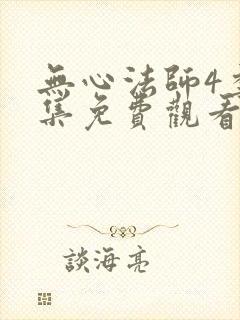 無心法師4
集免費觀看
談海亮